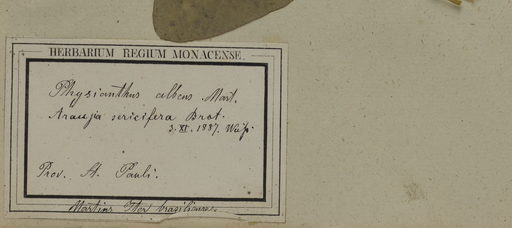 HERBARIUM REGIUM MONACENSE.
Physianthus albens Mart.
Araujia sericifera Brot.
3. XI. 1887.
Prov. St. Pauli.
Martius Iter brasiliense.